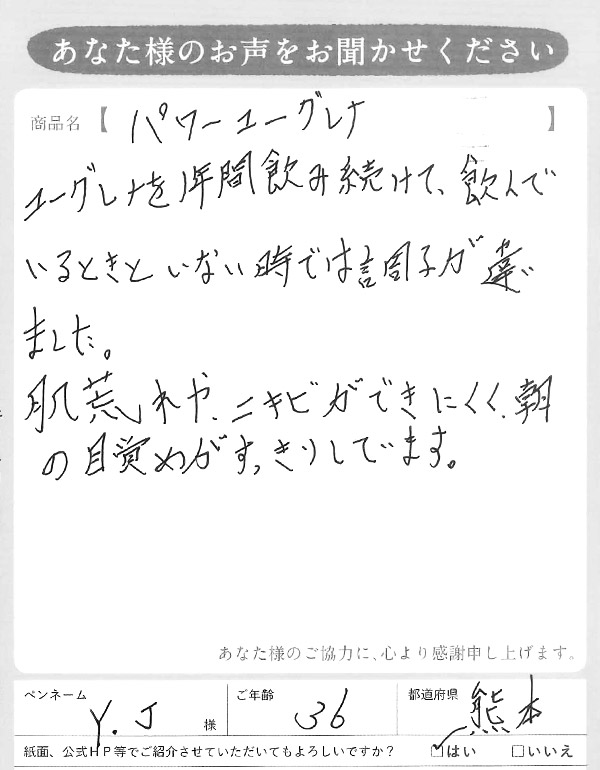 あなた様のお声をお聞かせください
商品名【 パワーユーグレナ 】
ユーグレナを1年間飲み続けて、飲んで
いるときといない時では調子が違い
ました。
肌荒れや、ニキビができにくく、朝
の目覚めがすっきりしています。
あなた様のご協力に、心より感謝申し上げます。
ペンネーム Y.J 様 ご年齢 36 都道府県 熊本
紙面、公式HP等でご紹介させていただいてもよろしいですか？ ☑はい □いいえ